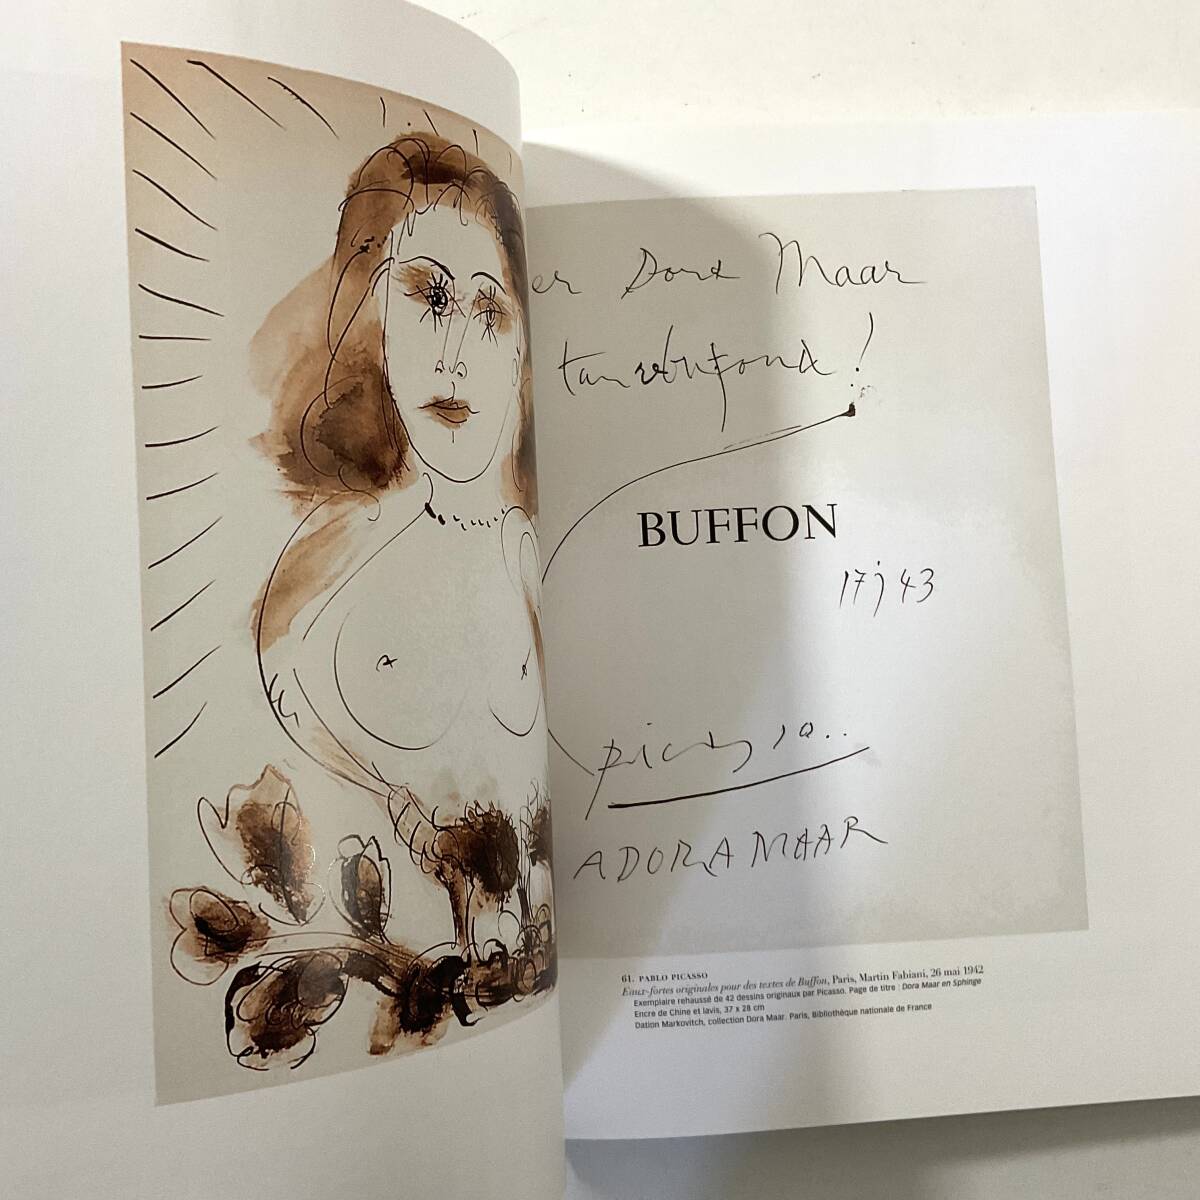 er Dora Maar
tan rebufond!
BUFFON
17 j 43
Picasso..
ADORA MAAR
61. PABLO PICASSO
Eaux-fortes originales pour des textes de Buffon, Paris, Martin Fabiani, 26 mai 1942
Exemplaire rehaussé de 42 dessins originaux par Picasso. Page de titre : Dora Maar en Sphinge
Encre de Chine et lavis, 37 x 28 cm
Dation Markovitch, collection Dora Maar. Paris, Bibliothèque nationale de France